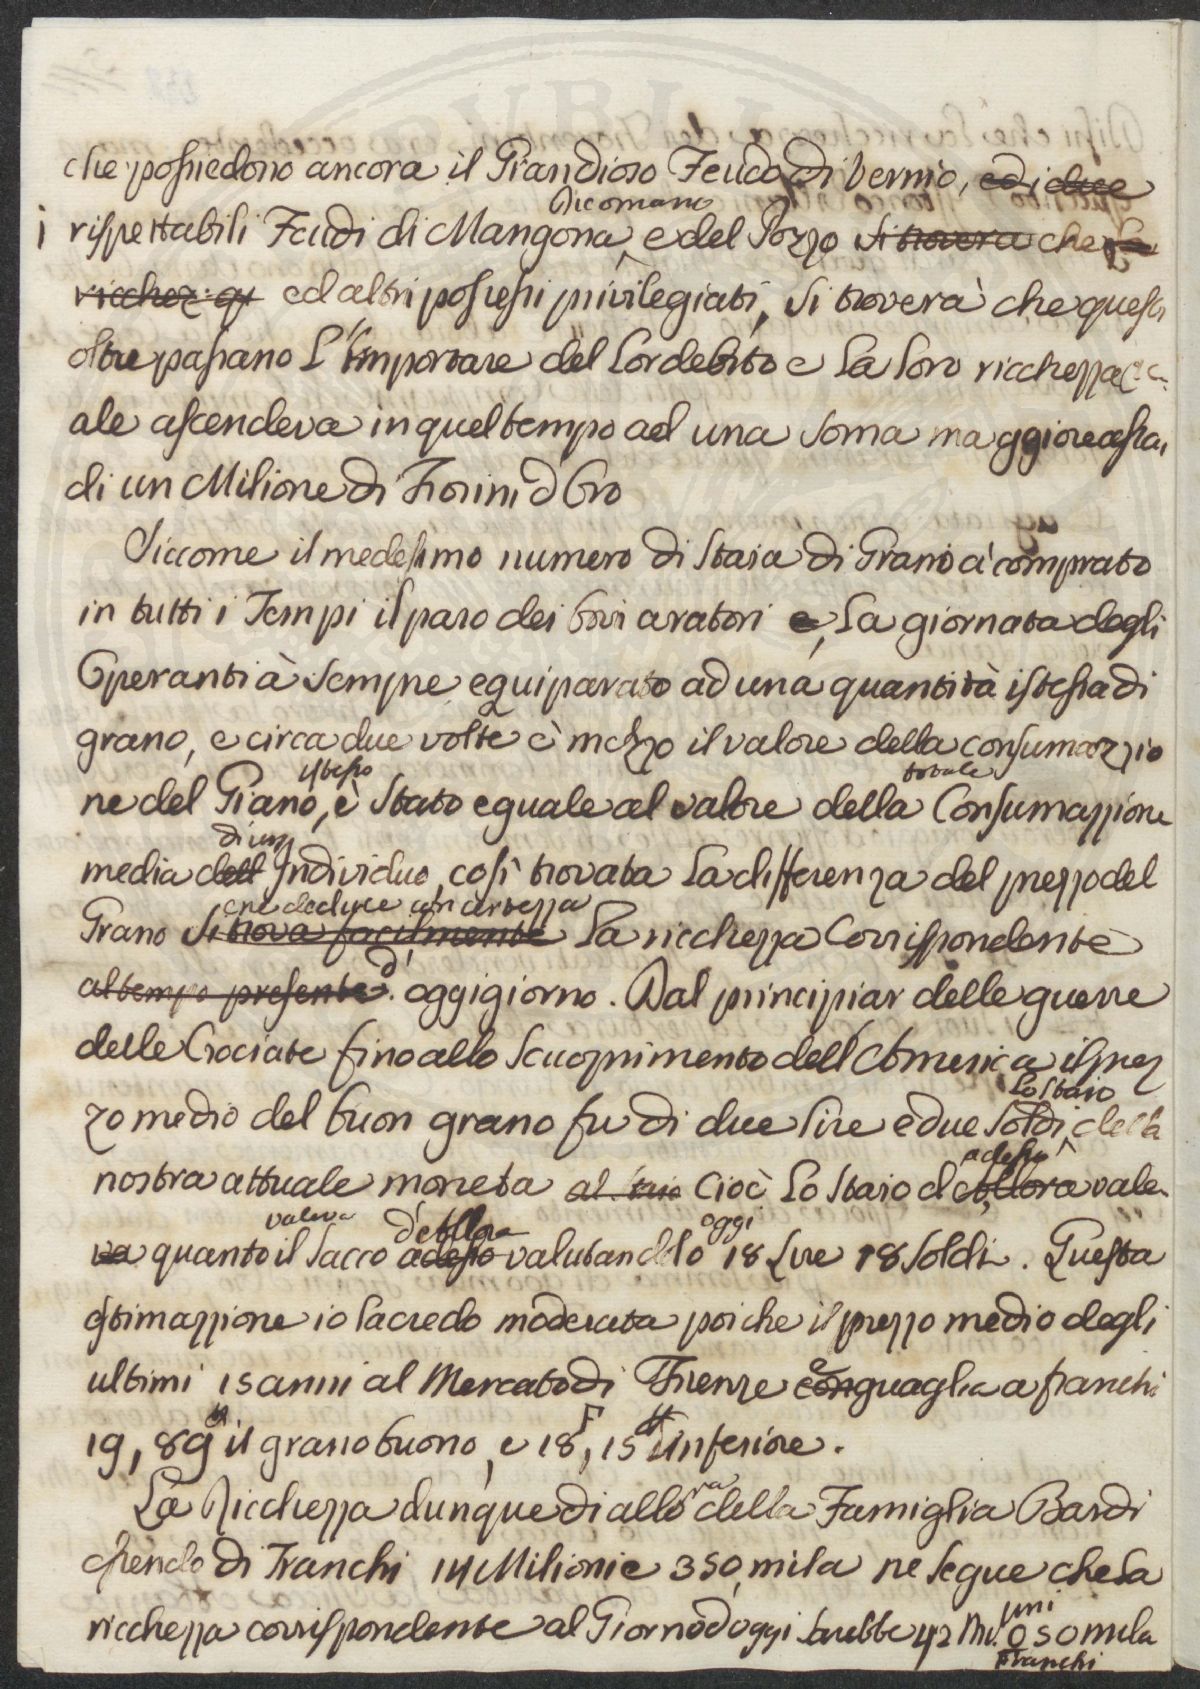 che possiedono ancora il Grandioso Feudo di Vernio, ed i due
Dicomano
i rispettabili Feudi di Mangona, e del Pozzo si trovera che la
ricchez: qu ed altri possessi privilegiati, si troverà che questi
oltre passano L'importare del Lor debito e La Loro ricchezza
ale ascendeva in quel tempo ad una Soma maggiore assai
di un Milione di Fiorini d'Oro
Siccome il medesimo numero di Staia di Grano à comprato
in tutti i Tempi il paro dei bovi aratori e, La giornata degli
Operanti à Sempre equiparato ad una quantità istessa di
grano, e circa due volte è mezzo il valore della consumazzio
istesso totale
ne del Grano, è Stato eguale al valore della Consumazzione
di un
media dell Individuo, così trovata La differenza del prezzo del
che deduce con certezza
Grano Si trova facilmente La ricchezza Corrispondente
d'
al tempo presente. oggigiorno. Dal principiar delle guerre
delle Crociate fino allo Scuoprimento dell America il prez
Lo Staio
zo medio del buon grano fu di due Lire e due Soldi della
adesso
nostra attuale moneta al staio Cioè Lo Staio d allora vale
valeva d'allora oggi
va quanto il Sacco adesso valutandolo 18 Lire 18 Soldi. Questa
stimazzione io La credo moderata poiche il prezzo medio degli
ultimi 15 anni al Mercato di Firenze conguaglia a franchi
19, 89 il grano buono, e 18, 15 l'inferiore.
ra
La Ricchezza dunque di allo della Famiglia Bardi
essendo di Franchi 14 Milioni e 350, mila ne Segue che La
uni
ricchezza corrispondente al Giorno d'oggi Sarebbe 42 Mi. 050 mila
Franchi